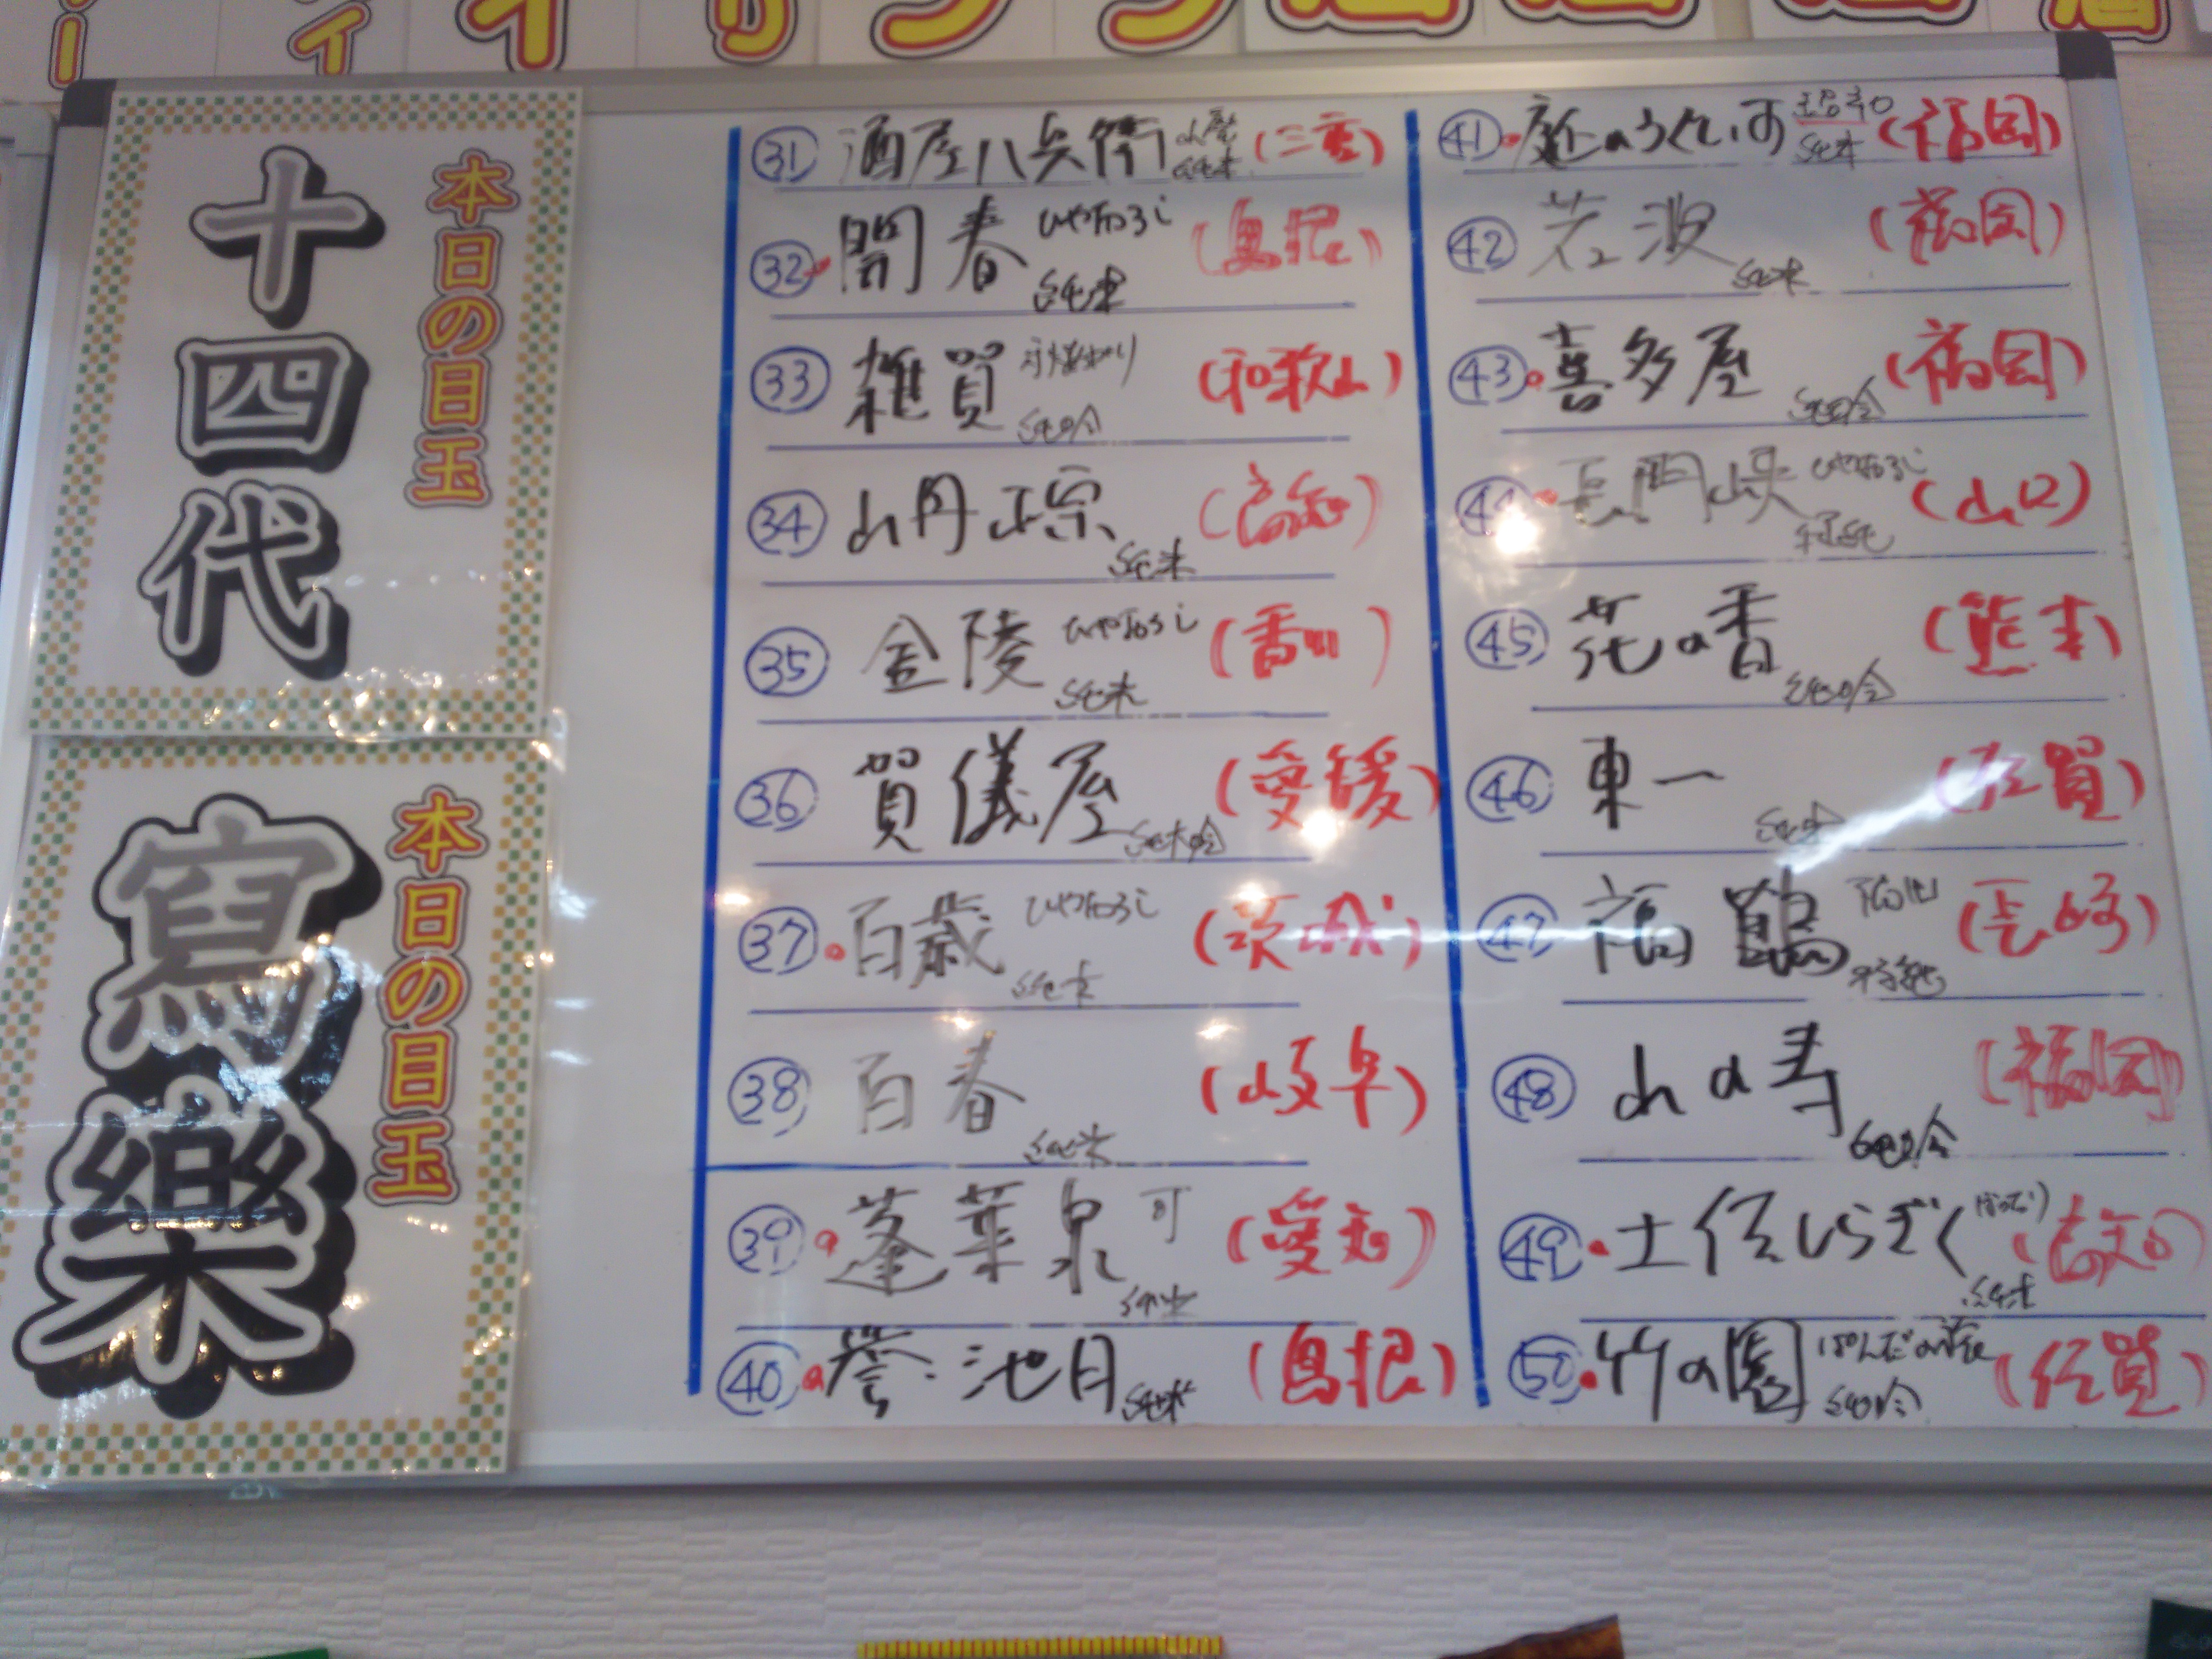 本日の目玉
十四代
本日の目玉
寫樂
31 酒屋八兵衛 山廃 純米 (三重)
32 開春 ひやおろし 純米 (島根)
33 雑賀 純吟 (和歌山)
34 山丹正宗 純米
35 金陵 ひやおろし 純米 (香川)
36 賀儀屋 純米吟 (愛媛)
37 百歳 ひやおろし 純米 (茨城)
38 百春 純米 (岐阜)
39 蓬莱泉 可 純米 (愛知)
40 誉池月 純米 (島根)
41 庭のうぐいす 純米 (福岡)
42 若波 純米 (福岡)
43 喜多屋 純吟 (福岡)
44 長門峡 ひやおろし 特純 (山口)
45 花の香 純吟 (熊本)
46 東一 (佐賀)
47 福鶴 特純 (長崎)
48 山の寿 純吟 (福岡)
49 土佐しらぎく 純米 (高知)
50 竹の園 ぱんだの夜 純吟 (佐賀)